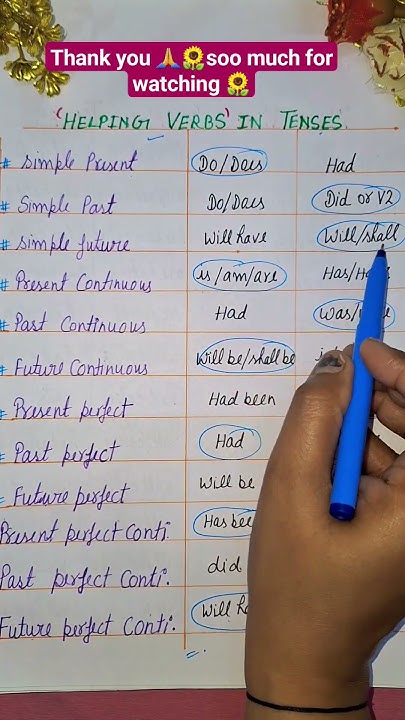 Thank you 🙏🌻soo much for
watching 🌻
'HELPING VERBS' IN TENSES
# Simple Present Do/Does Had
# Simple Past Do/Does Did or V2
# Simple future Will have Will/shall
# Present Continuous is/am/are Has/
# Past Continuous Had Was/
# Future Continuous Will be/shall be
# Present perfect Had been
# Past perfect Had
- Future perfect Will be
Present perfect Conti. Has
Past perfect Conti. did
Future perfect Conti. Will